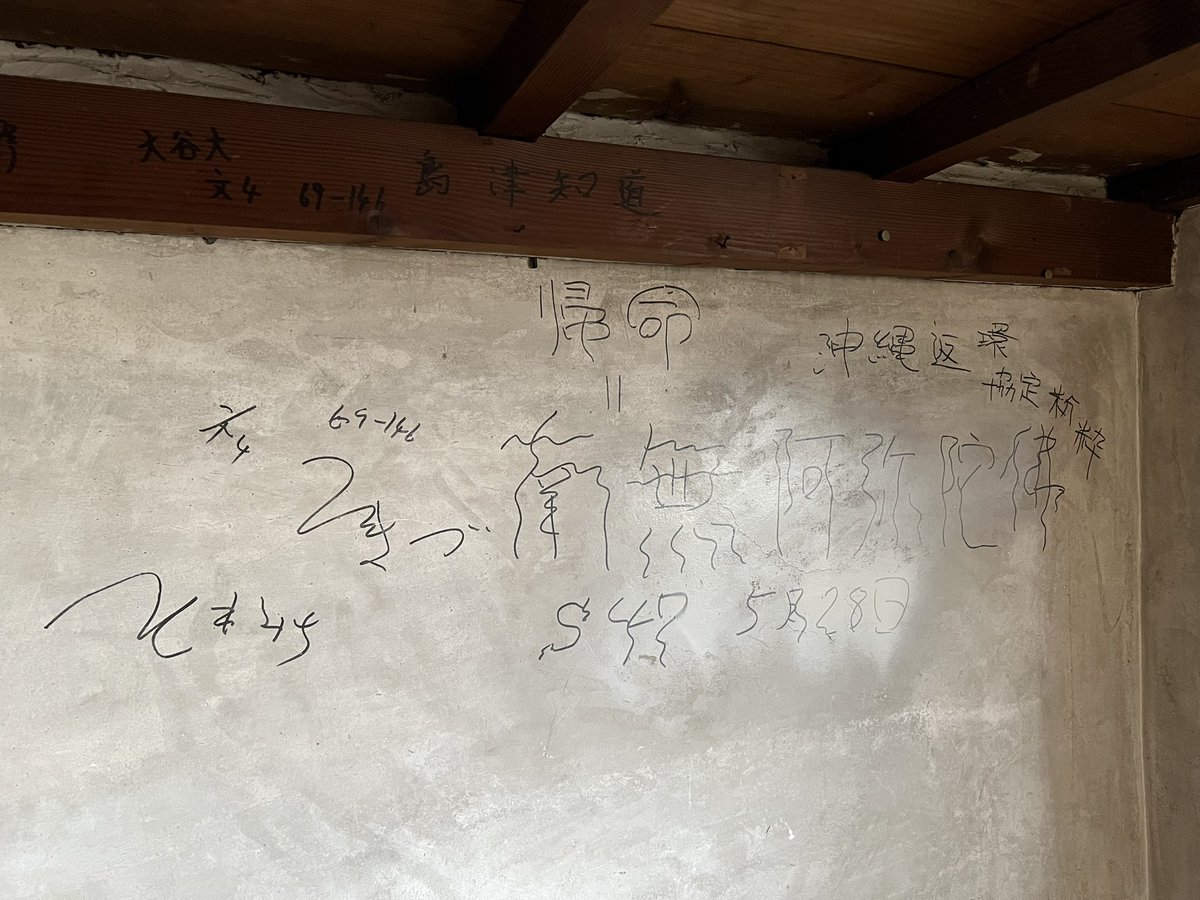 大谷大
文4 69-146 島津知道
帰命
=
沖縄返環
協定粉粋
文4 69-146
南無阿弥陀佛
S47 5月28日